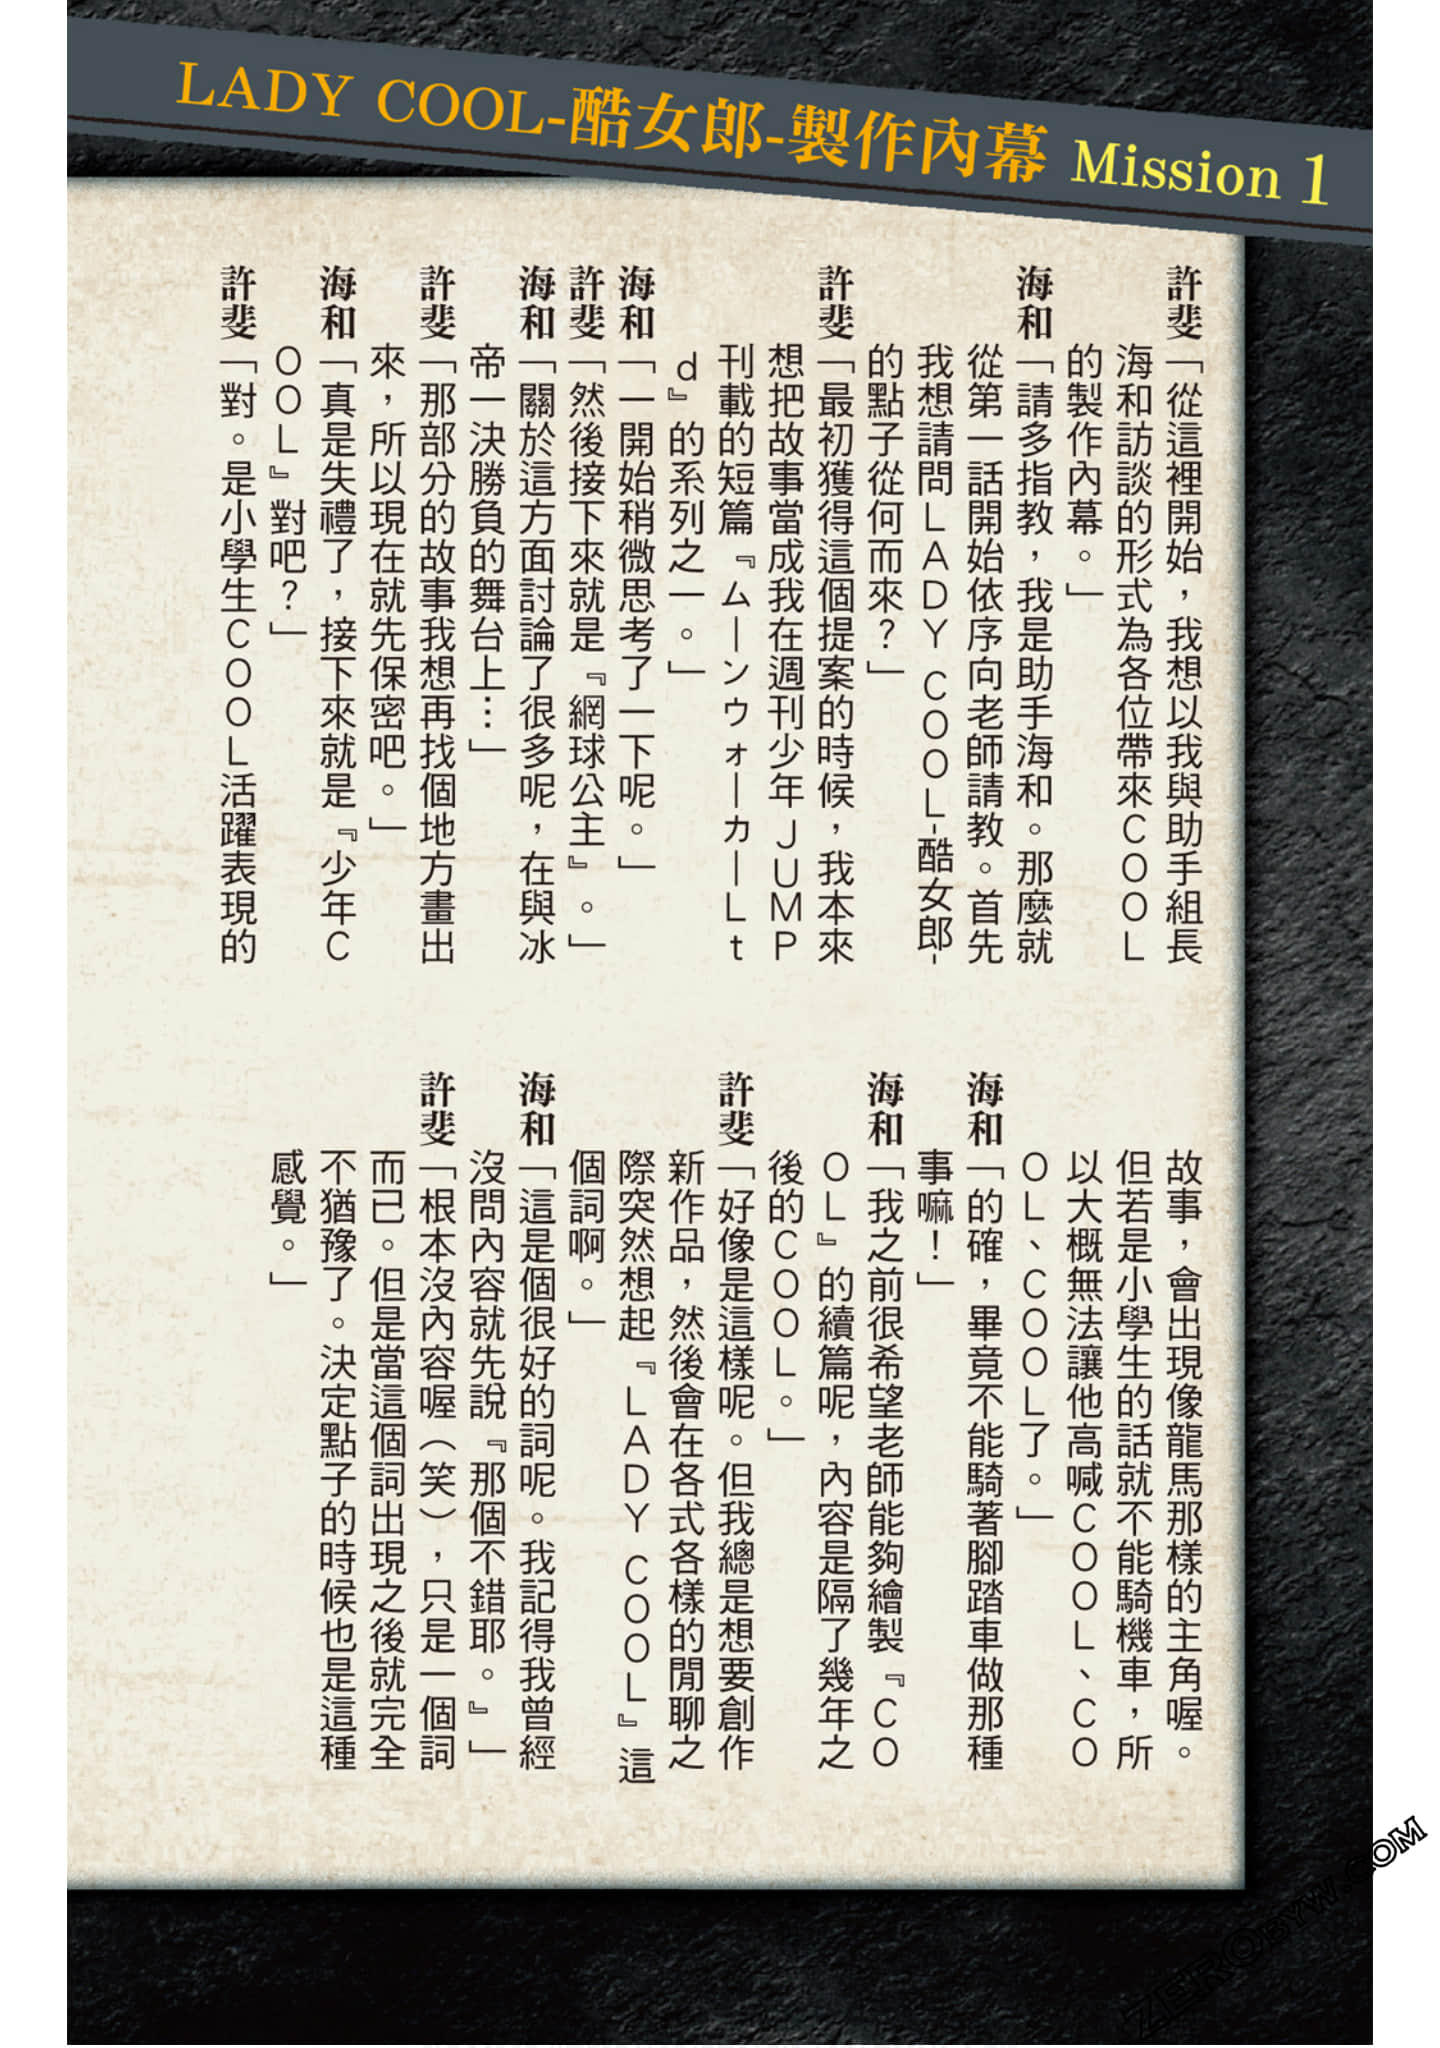 LADY COOL-酷女郎-製作內幕 Mission 1
許斐「從這裡開始，我想以我與助手組長
海和訪談的形式為各位帶來COOL
的製作內幕。」
海和「請多指教，我是助手海和。那麼就
從第一話開始依序向老師請教。首先
我想請問LADY COOL-酷女郎-
的點子從何而來？」
許斐「最初獲得這個提案的時候，我本來
想把故事當成我在週刊少年JUMP
刊載的短篇『ムーンウォーカーLt
d』的系列之一。」
海和「一開始稍微思考了一下呢。」
許斐「然後接下來就是『網球公主』。」
海和「關於這方面討論了很多呢，在與冰
帝一決勝負的舞台上…」
許斐「那部分的故事我想再找個地方畫出
來，所以現在就先保密吧。」
海和「真是失禮了，接下來就是『少年C
OOL』對吧？」
許斐「對。是小學生COOL活躍表現的
故事，會出現像龍馬那樣的主角喔。
但若是小學生的話就不能騎機車，所
以大概無法讓他高喊COOL、CO
OL、COOL了。」
海和「的確，畢竟不能騎著腳踏車做那種
事嘛！」
海和「我之前很希望老師能夠繪製『CO
OL』的續篇呢，內容是隔了幾年之
後的COOL。」
許斐「好像是這樣呢。但我總是想要創作
新作品，然後會在各式各樣的閒聊之
際突然想起『LADY COOL』這
個詞啊。」
海和「這是個很好的詞呢。我記得我曾經
沒問內容就先說『那個不錯耶。』」
許斐「根本沒內容喔（笑），只是一個詞
而已。但是當這個詞出現之後就完全
不猶豫了。決定點子的時候也是這種
感覺。」
ZEROBYW.COM